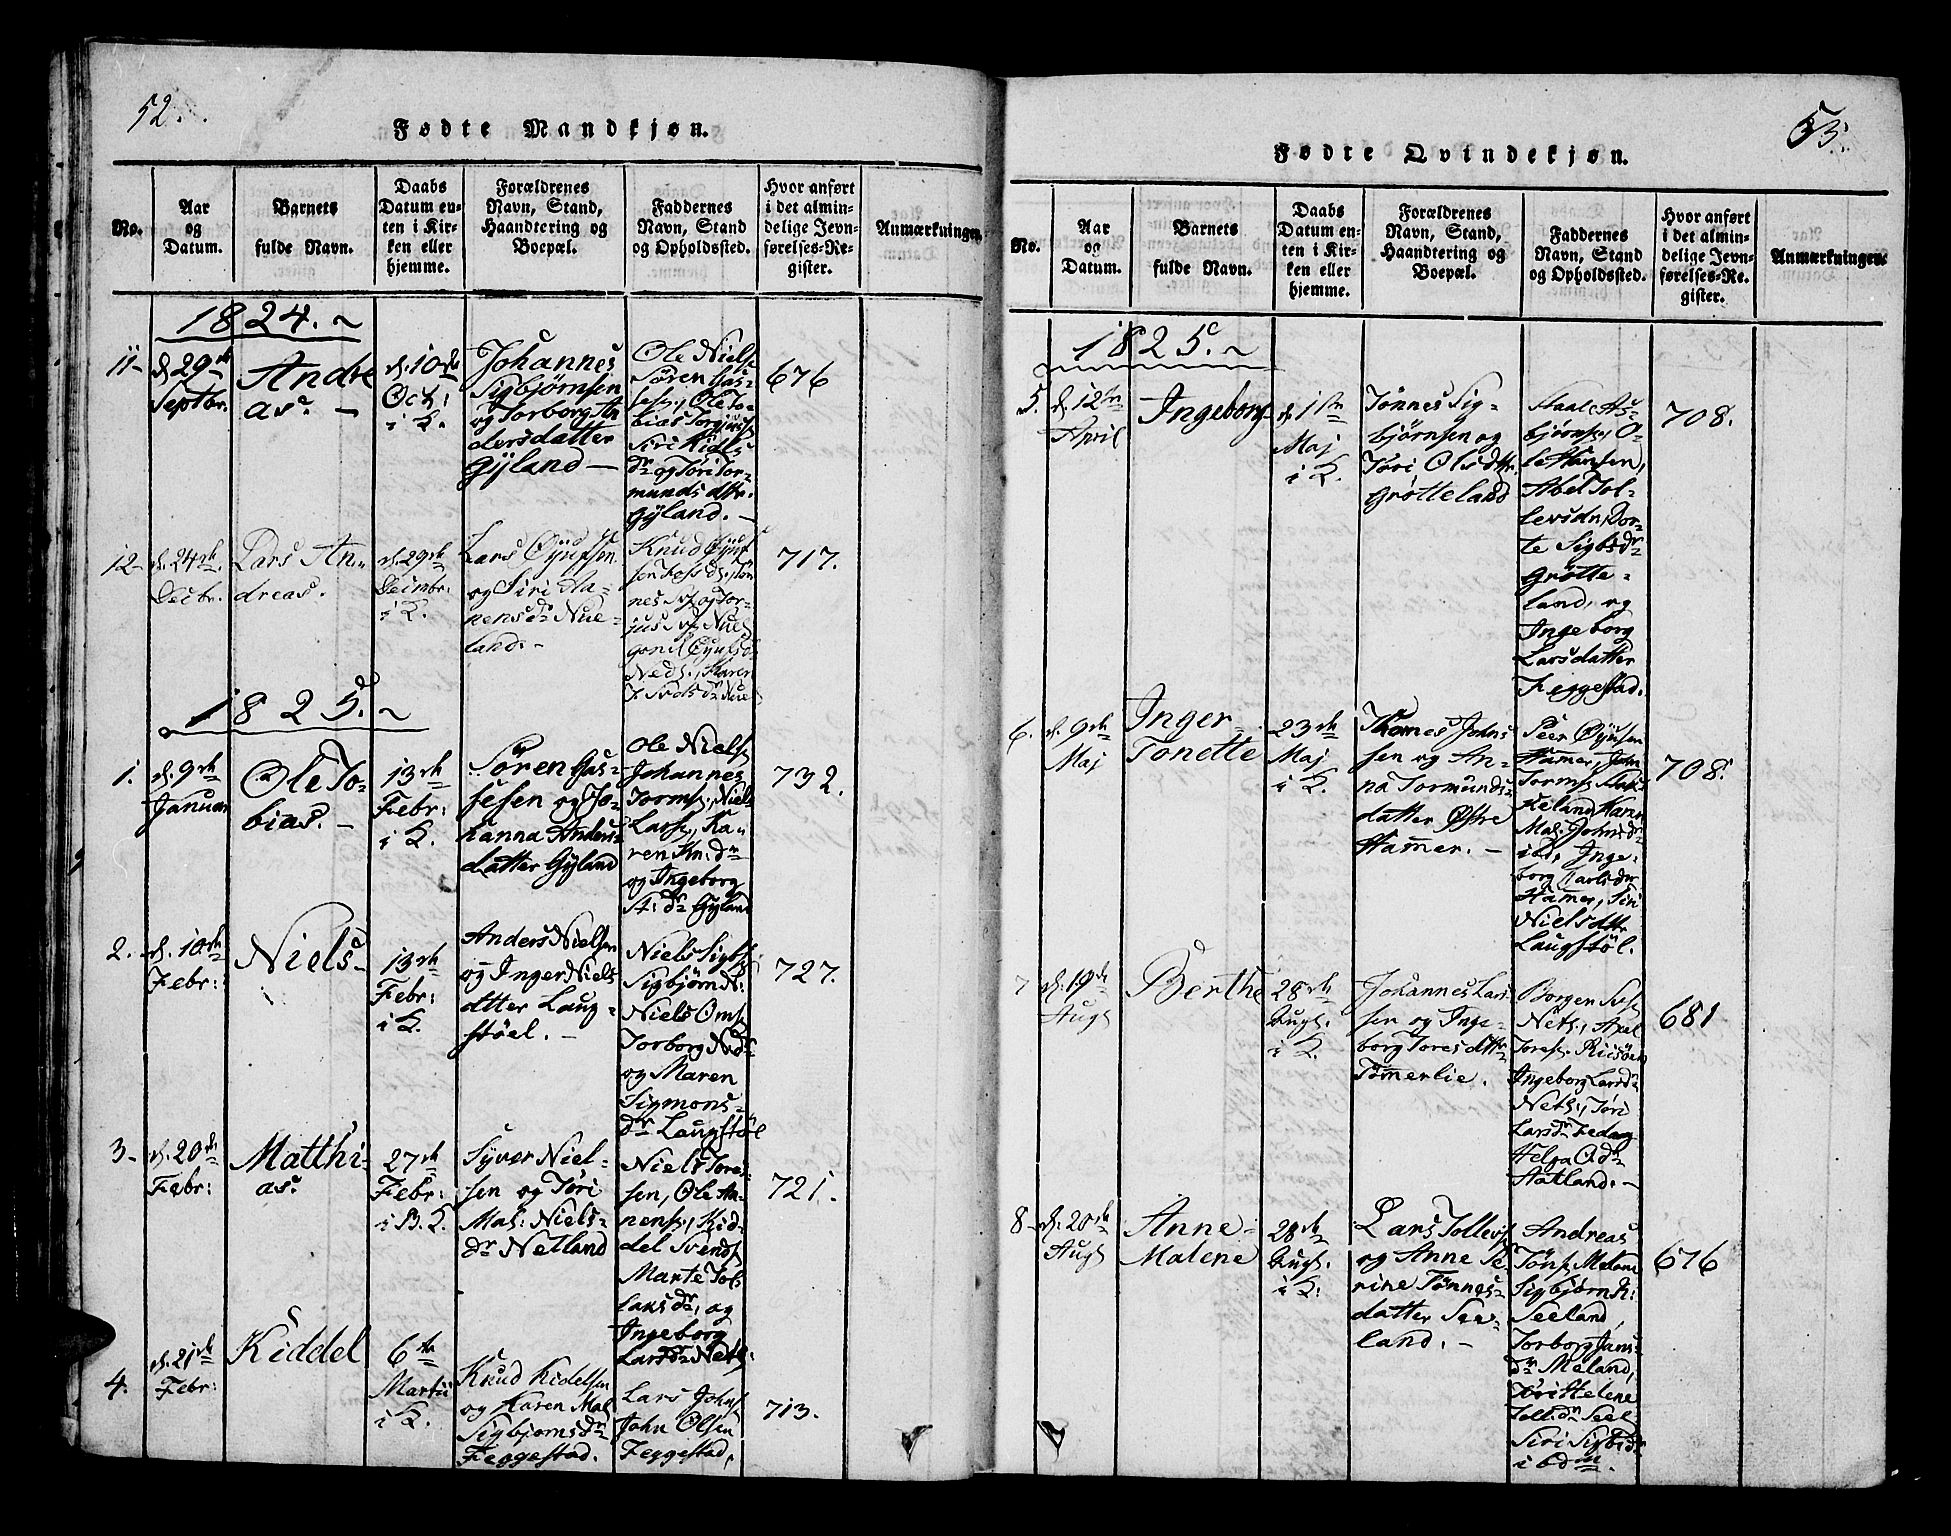 52.
Fødte Mandkjøn.
No.
Aar
og
Datum.
Barnets
fulde Navn.
Daabs
Datum en-
ten i Kir-
ken eller
hjemme.
Forældrenes
Navn, Stand,
Haandtering og
Boepæl.
Faddernes
Navn, Stand
og Opholdssted.
Hvor anført
i det almin-
delige Jevn-
førelses-Re-
gister.
Anmærkninger.
1824.
11-
d. 29de
Septbr.
Andre
as. -
d. 10de
Oct:
i K.
Johannes
Sigbjørnsen
og Torborg An
dersdatter
Gÿland -
Ole Niels
Søren Gas-
Ole To-
bias
Siri
dr og Tøri Tor-
munds dttr.
Gÿland. -
676
12-
d. 24de
Decbr.
Lars An-
dreas.
d. 29de
Decembr.
i K.
Lars Øÿufsen
og Siri Ha-
nensdr Nue-
land. -
Knud Øÿuf
sen
nes og Tor-
jus Nuel
Øÿufsd
Neds., Karen
717.
1825.
1.
d. 9de
Januari
Ole To-
bias. -
13de
Febr:
i K.
Søren Gas-
sesen og Jo-
hanna Anders
datter Gÿland
Ole Niels
Johannes
Torms, Niels
Lars, Ka-
ren Kn: dr
og Ingeborg
A: dr Gÿland
732.
2.
d. 10de
Febr:
Niels-
13de
Febr:
i K.
Anders Nielsen
og Inger Niels
dtter Laug-
støel. -
Niels Sigb
Sigbjørn
Niels Oms
Torborg N dr
og Maren
Sigmons-
dr Laugstøl
727.
3-
d. 20de
Febr:
Matthi-
as.
27de
Febr:
i B. K.
Syver Niel-
sen og Tøri
Mal: Niels-
dr Netland
Niels Tores
sen, Ole An-
nens, Kid-
del Svends
Marte Tol-
laksdr, og
Ingeborg
Larsdr Netl.
721.
4.
d. 21de
Febr:
Kiddel
6te
Martii
i K.
Knud Kidelsen
og Karen Mal
Sigbjørnsdr
Feggestad.
Lars Johns
John Olsen
Feggestad,
713.
53.
Fødte Qvindekjøn.
No.
Aar
og
Datum.
Barnets
fulde Navn.
Daabs
Datum en-
ten i Kir-
ken eller
hjemme.
Forældrenes
Navn, Stand,
Haandtering og
Boepæl.
Faddernes
Navn, Stand
og Opholdssted.
Hvor anført
i det almin-
delige Jevn-
førelses-Re-
gister.
Anmærkninger.
1825.
5.
d. 12te
April
Ingeborg
d. 1ste
Maj
i K.
Tønnes Sig-
bjørnsen og
Tøri Olsdttr.
Grøtteland
Staale As-
bjørns, O-
le Hansen,
Abel Tol-
levsdr, Dor-
te Sigbsdr
Grøtte-
land, og
Ingeborg
Larsdatter
Feggestad.
708.
6.
d. 9de
Maj
Inger
Tonette
23de
Maj
i K.
Thomes Johns
sen og An-
na Tormunds-
datter Øftre
Hamer. -
Peer Øÿufsen
Hamer, John
Torms
Karen
Mal: Johnsdr
ibd, Inge-
borg Karlsdr
Hamer, Siri
Nielsdttr
Laugstöl.
708.
7
d. 19de
Augt
Berthe
28de
Augt.
i K.
Johannes Lar-
sen og Inge-
borg Toresdttr
Tömerlie.
Borgen
Netl:, Axel
Tores. Risøen
Ingeborg Larsdr
Netl:, Tøri
Larsdr Fedog
Helga O.dr
Hatland. -
681
8-
d. 20de
Augt
Anne-
Malene
28de
Augt.
i K.
Lars Tollevs
og Anne Se-
rine Tønnes-
datter See-
land. -
Andreas
Töns. Meland
Sigbjørn R:
Seeland,
Torborg Jans-
dr. Meland,
Tøri Helene
Toll: dr Seel
Siri Sigbdr
ibdm.
676